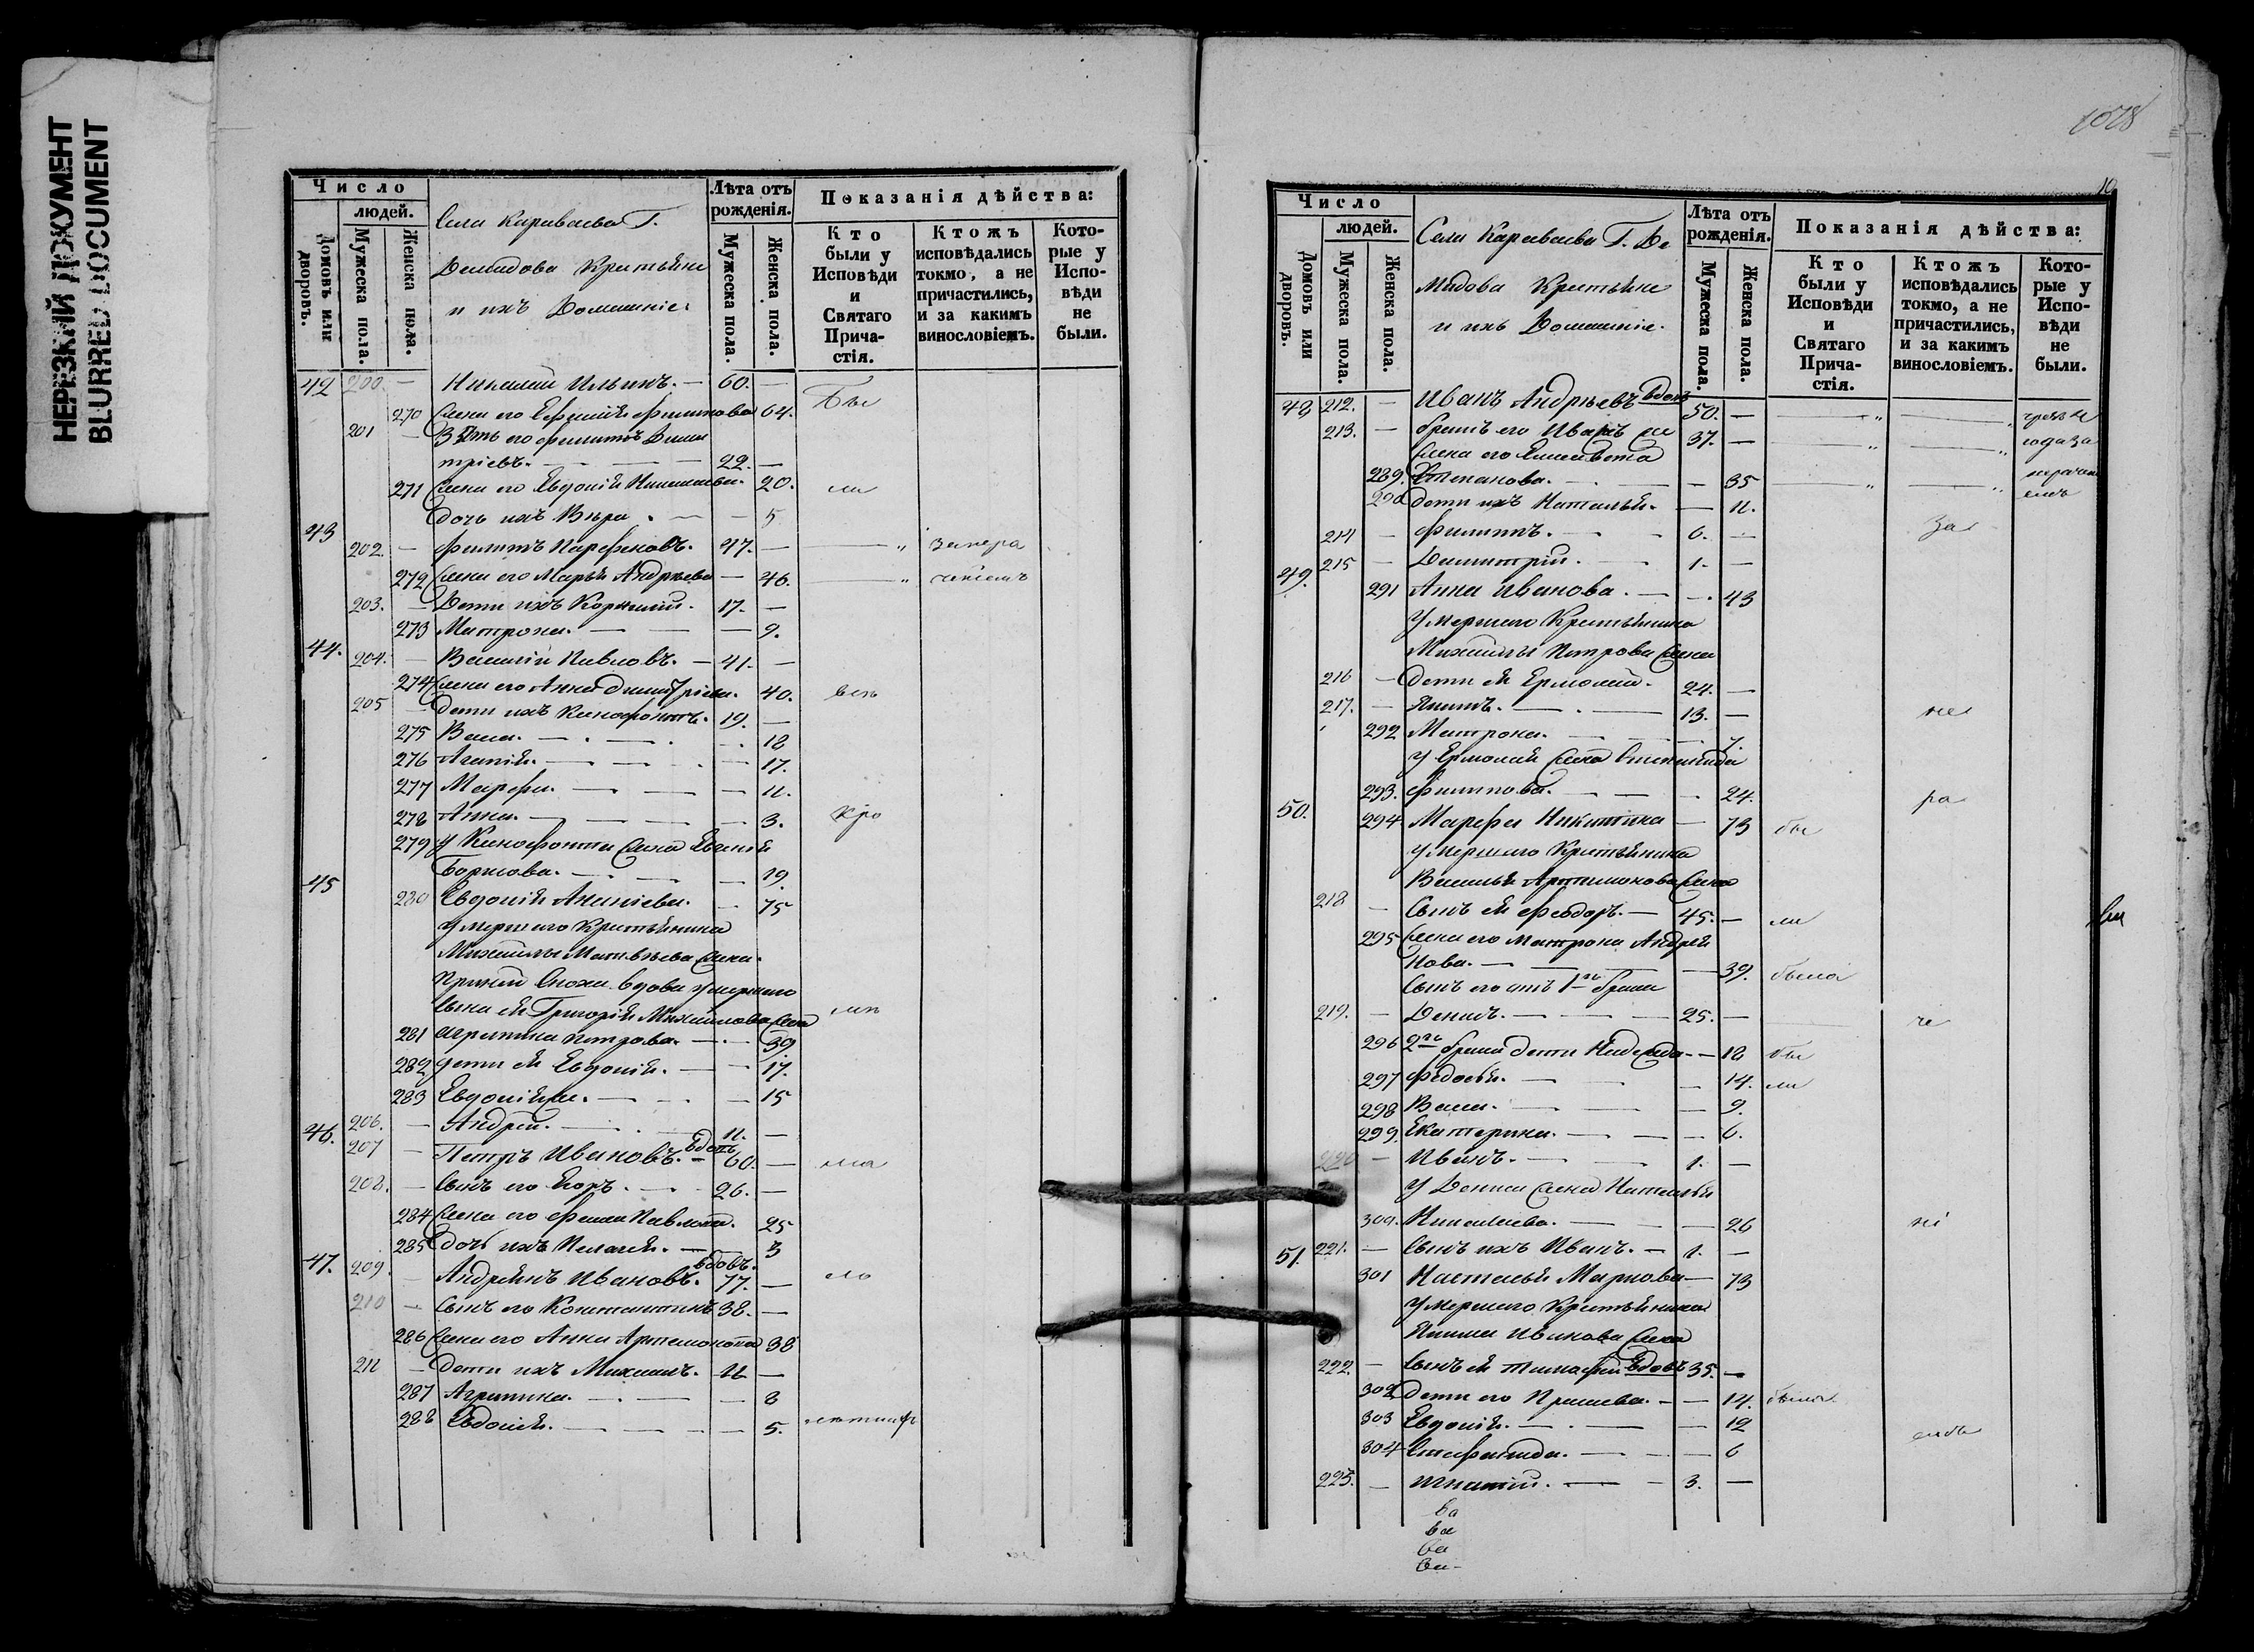 НЕРЕЗКИЙ ДОКУМЕНТ
BLURRED DOCUMENT
Число
людей.
Домовъ или дворовъ.
Мужеска пола.
Женска пола.
Села Караваева Г.
Демидова Крестьяне
и ихъ Домашніе.
Лѣта отъ рожденія.
Мужеска пола.
Женска пола.
Показанія дѣйства:
Кто были у Исповѣди и Святаго Прича-стія.
Ктожъ исповѣдались токмо, а не причастились, и за какимъ винословіемъ.
Кото-рые у Испо-вѣди не были.
42 200. — Николай Ильинъ. — 60. — Бы
270 Жена его Филипова 64.
201 — Зять его Филиппъ Дими
тріевъ. — 22. —
271 Жена его Евдокія Николаева. 20. ли
дочь ихъ Вѣра. — — 5
43 202. — Филиппъ Парфеновъ. 47. — — „ занера
272 Жена его Марья Андреева — 46. — „ ченіемъ
203. — Дети ихъ Корнилий. 17. —
273 Матрона. — — 9.
44. 204. — Василий Павловъ. — 41. —
274 Жена его Анна Димитріева. 40. всѣ
205 — Дети ихъ Ксенофонтъ. 19. —
275 Васса. — — 18
276 Агапія. — — 17.
277 Марфа. — — 11.
278 Анна. — — 3. кро
279 У Ксенофонта Жена Евгенія
Борисова. — — 19.
45 280 Евдокія Ананіева. — 75
умершего Крестьянина
Михайлы Матвѣева Жена.
Сноха вдова умершаго
Сына ея Григорія Михайлова Жена
281 Агрипина Петрова. — 39.
282 дети ея Евдокія. — 17.
283 Евдокія. — — 15
206. — Андрей. — 11. —
46. 207 — Петръ Ивановъ. вдовъ 60. —
208. — Сынъ его Егоръ. — 26. —
284 Жена его Павлова. 25
285 дочь ихъ Пелагея. — 3
47. 209. — Андреянъ Ивановъ. вдовъ. 77. —
210 — Сынъ его Константинъ 38. —
286 Жена его Анна Артемонова 38
211 — Дети ихъ Михаилъ. 11 —
287 Агрипина. — — 8
288 Евдокія. — — 5.
1078
10
Число
людей.
Домовъ или дворовъ.
Мужеска пола.
Женска пола.
Села Караваева Г. Де
мидова Крестьяне
и ихъ Домашніе.
Лѣта отъ рожденія.
Мужеска пола.
Женска пола.
Показанія дѣйства:
Кто были у Исповѣди и Святаго Прича-стія.
Ктожъ исповѣдались токмо, а не причастились, и за какимъ винословіемъ.
Кото-рые у Испо-вѣди не были.
48 212. — Иванъ Андреевъ вдовъ 50. — — „ — „
213. — братъ его Иванъ же 37. — — „ — „ года за
Жена его Елисавета
289. Степанова. — — 35 — „ — „
290 дети ихъ Наталья. — 11.
214 — Филиппъ. — 6. — за
215 — Димитрій. — 1. —
49. 291 Анна Иванова. — 43
умершаго Крестьянина
Михайлы Петрова Жена
216 — дети ея Ермолай. 24. —
217. — 13. — не
292 Матрона. — 7.
у Ермолая Жена Степанида
293. Филипова. — — 24.
50. 294 Марфа Никитина — 73 бы ра
умершаго Крестьянина
Василья Артамонова Жена
218 — Сынъ ея Феодоръ. — 45. — ли
295 Жена его Матрона Андрея
нова. — — 39. была
Сынъ его отъ 1го брака
219. — Денисъ. — 25. — че
296 2го брака дети Надежда — 18 бы
297 Федосья. — — 14. ли
298 Васса. — — 9.
299. Екатерина. — — 6.
220 — Иванъ. — 1. —
У Дениса Жена Наталья
300. Николаева. — — 26 ні
221. — Сынъ ихъ Иванъ. — 1. —
51. 301 Настасья Маркова — 73
умершаго Крестьянина
Иванова Жена
222. — Сынъ ея Тимофей вдовъ 35. —
302 дети его — 14. были
303 Евдокія. — — 12
304 Степанида. — — 6 емъ
223. — Игнатій. — 3. —
ва
ва
ва
ва